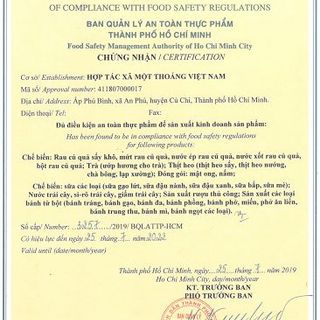 OF COMPLIANCE WITH FOOD SAFETY REGULATIONS
BAN QUẢN LÝ AN TOÀN THỰC PHẨM
THÀNH PHỐ HỒ CHÍ MINH
Food Safety Management Authority of Ho Chi Minh City
CHỨNG NHẬN / CERTIFICATION
Cơ sở/ Establishment: HỢP TÁC XÃ MỘT THOÁNG VIỆT NAM
Mã số/ Approval number: 411807000017
Địa chỉ/ Address: Ấp Phú Bình, xã An Phú, huyện Củ Chi, Thành phố Hồ Chí Minh.
Điện thoại/ Tel: Fax:
Đủ điều kiện an toàn thực phẩm để sản xuất kinh doanh sản phẩm:
Has been found to be in compliance with food safety regulations
for following products:
Chế biến: Rau củ quả sấy khô, mứt rau củ quả, nước ép rau củ quả, nước xốt rau củ quả,
bột rau củ quả; Trà (ướp hương cho trà); Thịt heo (thịt heo sấy, thịt heo nướng,
chà bông, lạp xưởng); Đóng gói: mật ong, nấm;
Chế biến: sữa các loại (sữa gạo lứt, sữa đậu nành, sữa đậu xanh, sữa bắp, sữa mè);
Nước trái cây, si-rô trái cây, giấm trái cây; Sản xuất rượu thủ công; Sản xuất các loại
bánh từ bột (bánh tráng, bánh gạo, bánh đa, bánh phồng, bánh phở, miến, phở ăn liền,
bánh trung thu, bánh mì, bánh ngọt các loại).
Số cấp/ Number: /2019/ BQLATTP-HCM
Có hiệu lực đến ngày 25 tháng 7 năm 2022
Valid until (date/month/year)
Thành phố Hồ Chí Minh, ngày 25 tháng 7 năm 2019
day/month/year
KT. TRƯỞNG BAN
PHÓ TRƯỞNG BAN